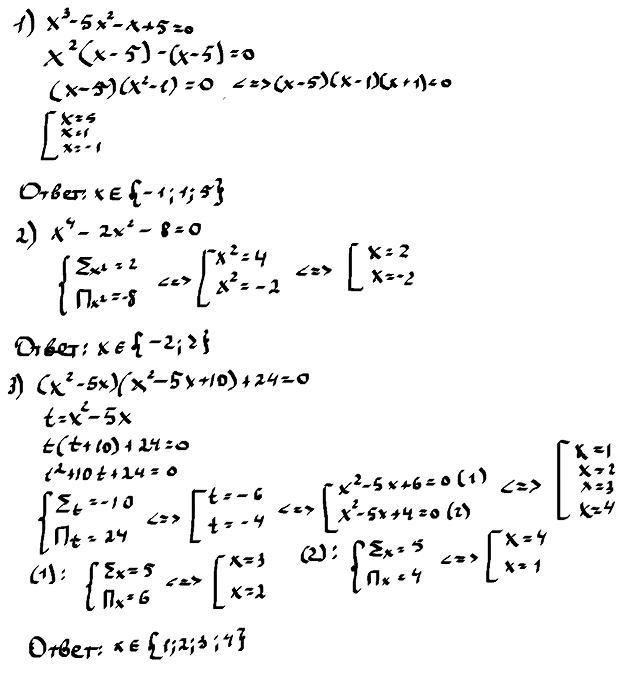 1) x³-5x²-x+5=0
x²(x-5)-(x-5)=0
(x-5)(x²-1)=0 <=> (x-5)(x-1)(x+1)=0
[ x=5
x=1
x=-1
Ответ: x ∈ {-1; 1; 5}
2) x⁴-2x²-8=0
{ Σx²=2 <=> [ x²=4 <=> [ x=2
Πx²=-8 x²=-2 x=-2
Ответ: x ∈ {-2; 2}
3) (x²-5x)(x²-5x+10)+24=0
t=x²-5x
t(t+10)+24=0
t²+10t+24=0
{ Σt=-10 <=> [ t=-6 <=> [ x²-5x+6=0 (1) <=> [ x=1
Πt=24 t=-4 x²-5x+4=0 (2) x=2
x=3
x=4
(1): { Σx=5 <=> [ x=3 (2): { Σx=5 <=> [ x=4
Πx=6 x=2 Πx=4 x=1
Ответ: x ∈ {1; 2; 3; 4}